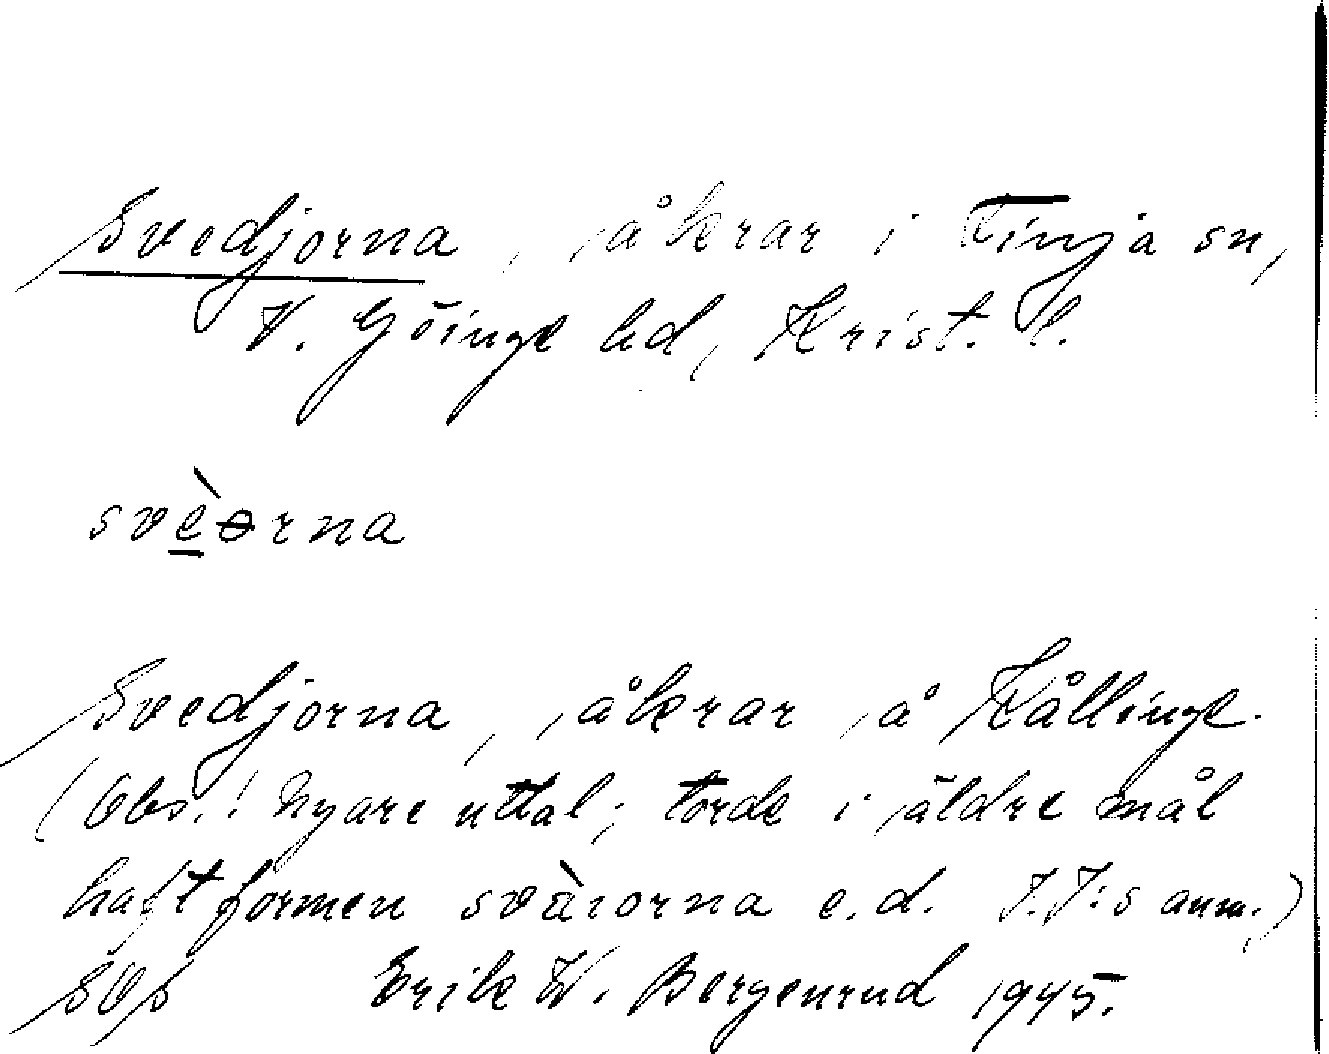 Svedjorna, åkrar i Finja sn,
V. Göinge hd, Krist. l.
svèorna
Svedjorna, åkrar å Kållinge.
(Obs.! nyare uttal; torde i äldre mål
haft formen svàrorna e.d. I.I:s anm.)
SOS Erik W. Bergenrud 1945.